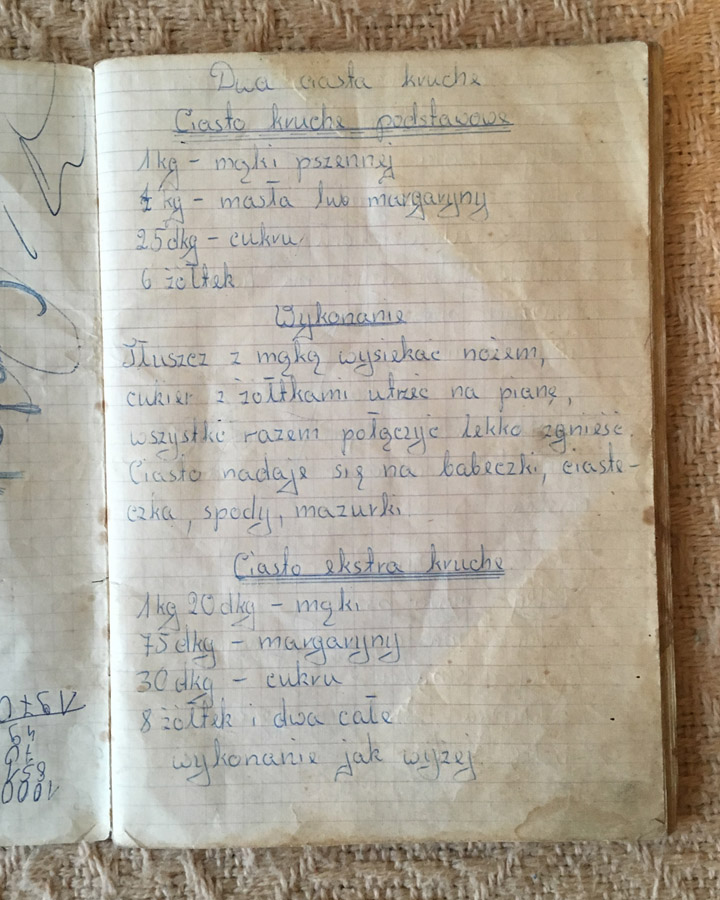 Dwa ciasta kruche
Ciasto kruche podstawowe
1kg - mąki pszennej
kg - masła lub margaryny
25dkg - cukru
6 żółtek
Wykonanie
Tłuszcz z mąką wysiekać nożem,
cukier z żółtkami utrzeć na pianę,
wszystko razem połączyć lekko zgnieść.
Ciasto nadaje się na babeczki, ciaste-
czka, spody, mazurki
Ciasto ekstra kruche
1kg 20dkg - mąki
75dkg - margaryny
30dkg - cukru
8 żółtek i dwa całe
wykonanie jak wyżej
1970
49
1000